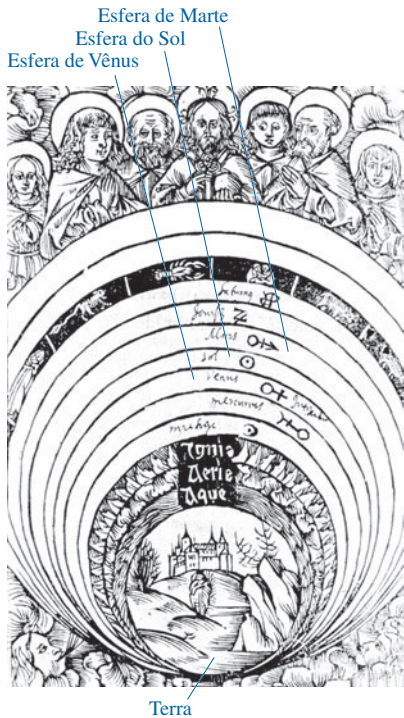 Esfera de Marte
Esfera do Sol
Esfera de Vênus
Jouis
Mars
Sol
Venus
mercurius
Ignis
Aeris
Aque
Terra